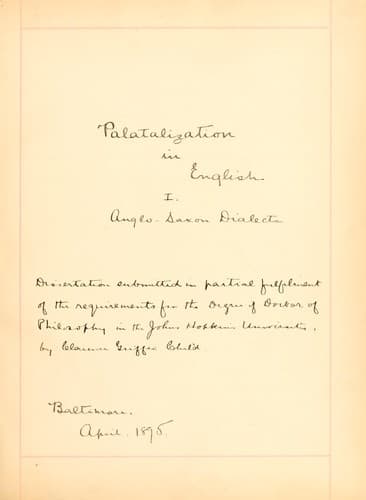 Palatalization
in
English
I.
Anglo-Saxon Dialects
Dissertation submitted in partial fulfilment
of the requirements for the Degree of Doctor of
Philosophy in the Johns Hopkins University,
by Clarence Griffin Child
Baltimore.
April. 1895.